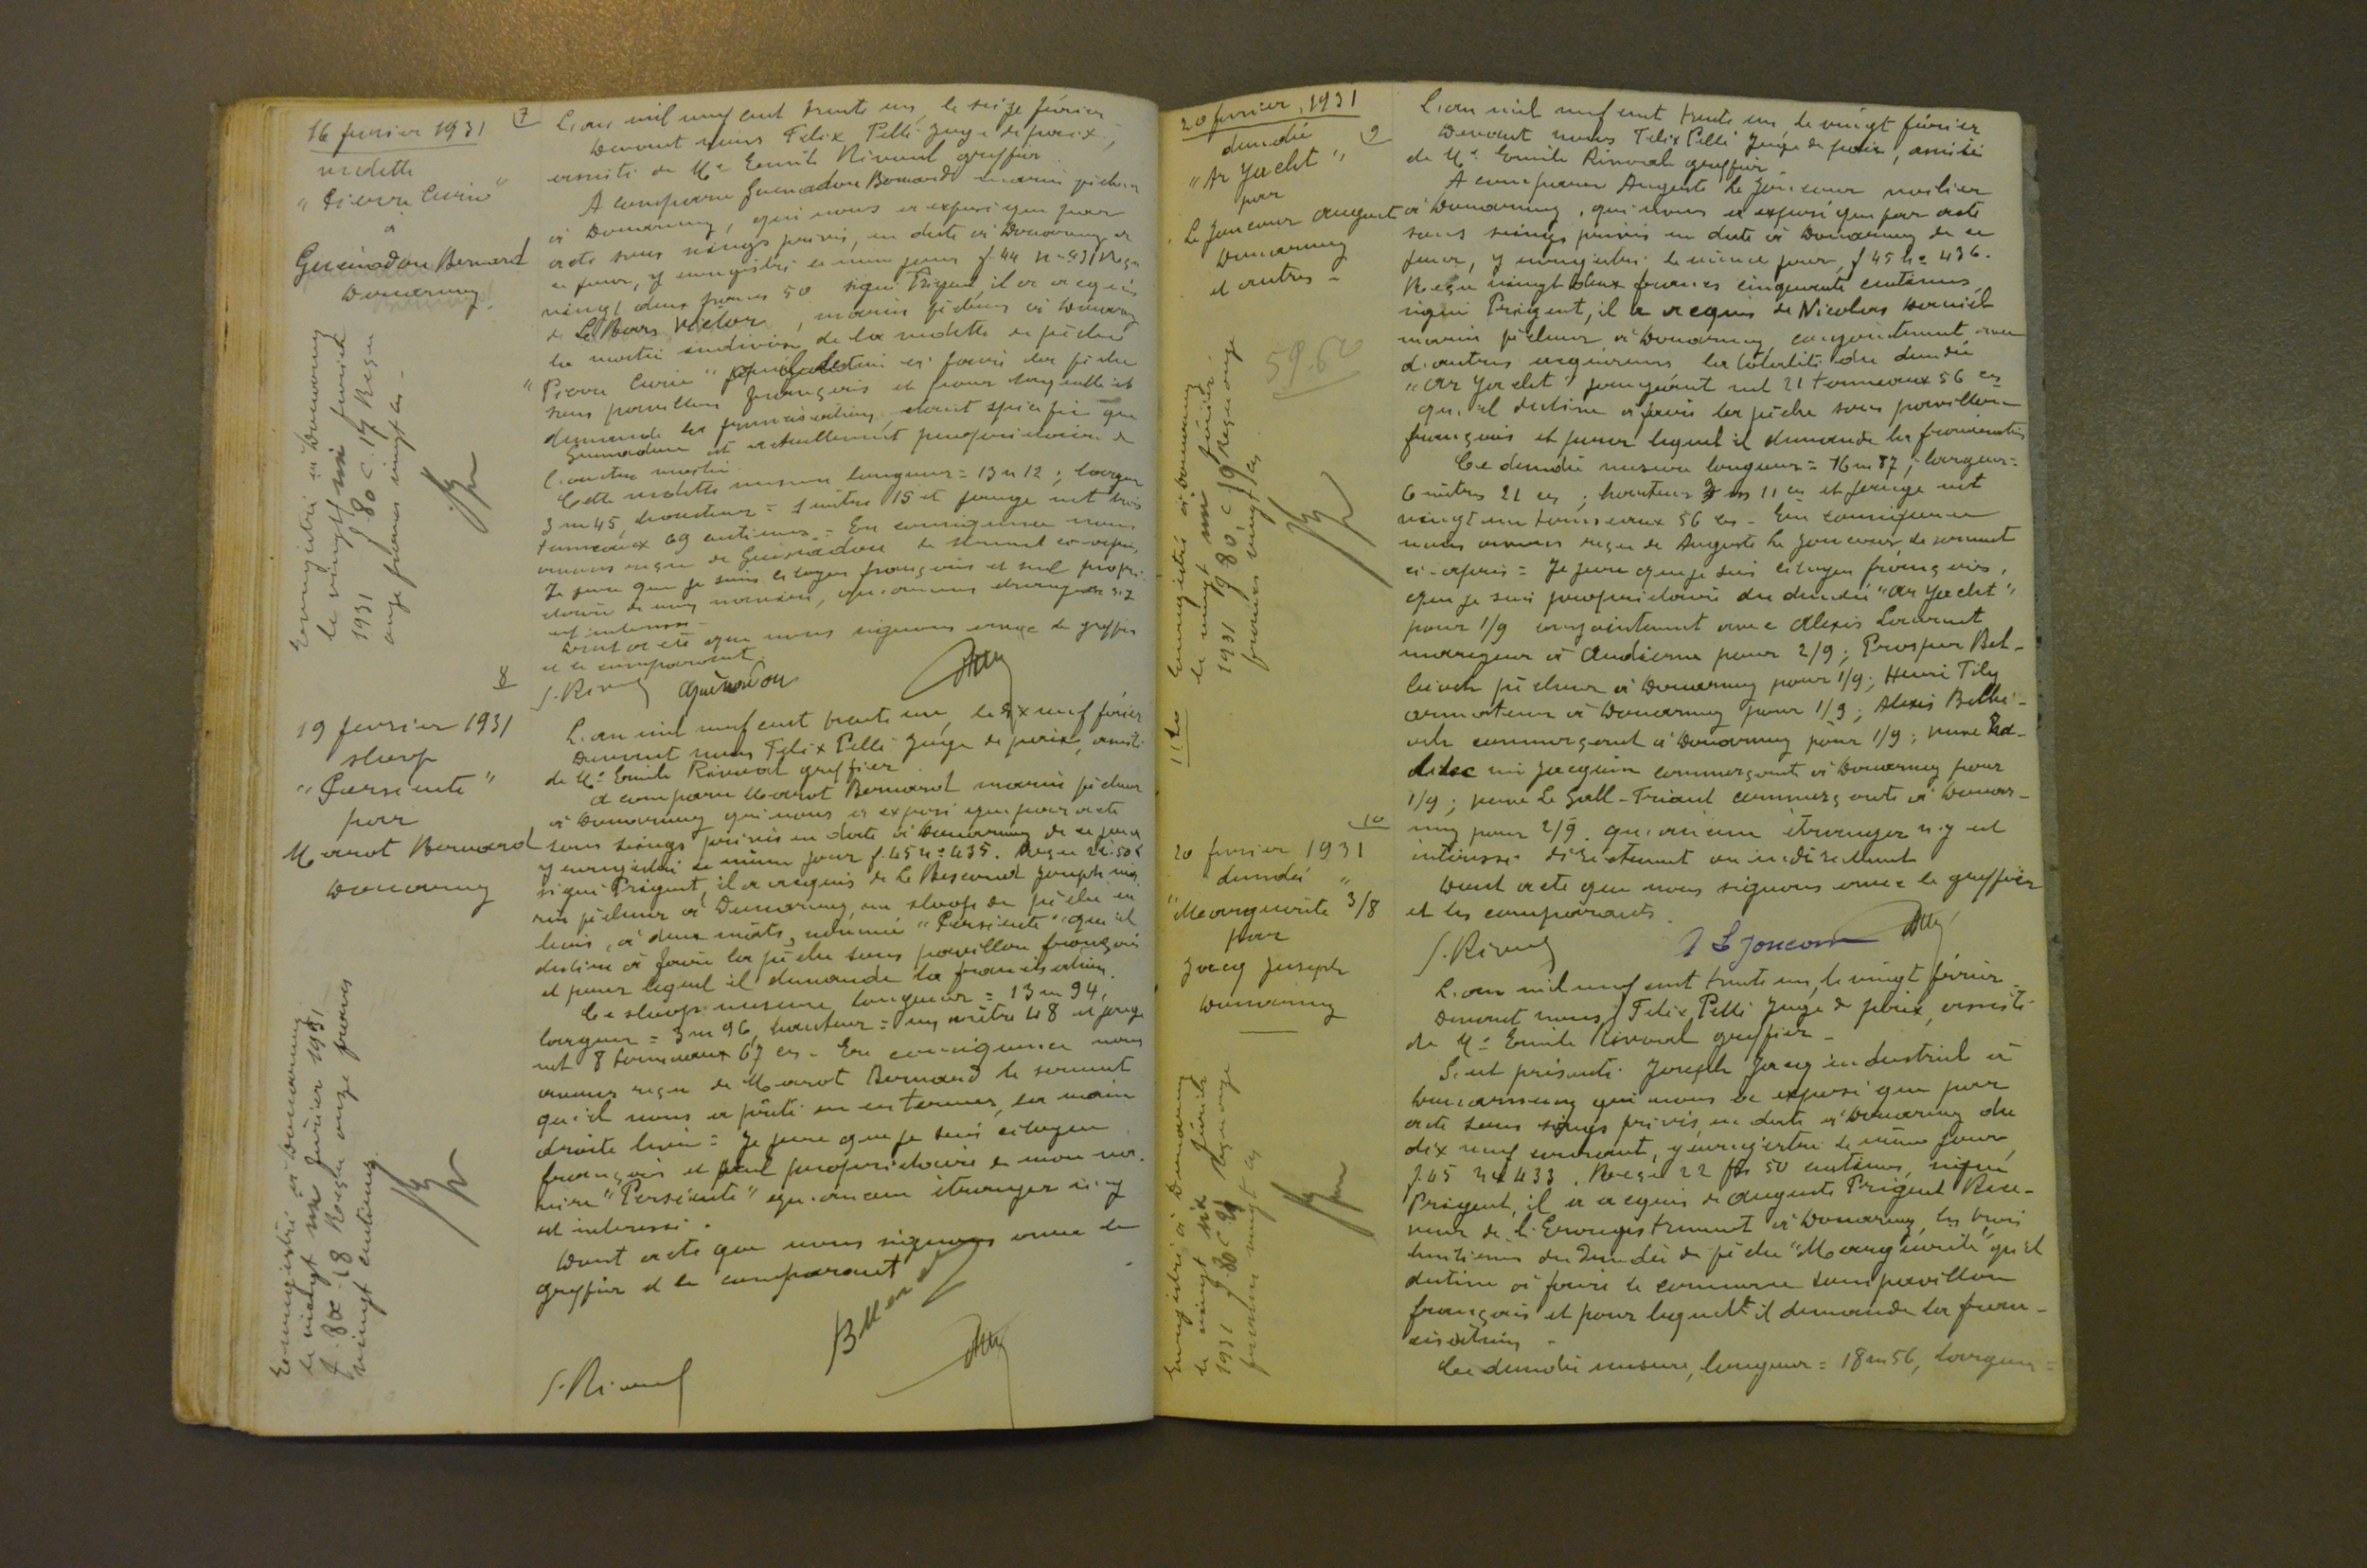 16 fevrier 1931
vedette
"Pierre Curie"
à
Guénadou Bernard
Douarnenez.
Enregistré à Douarnenez
le vingt six février
1931 f. 80 c. 17 Reçu
onze francs vingt cs -
7
L'an mil neuf cent trente un, le seize février
Devant nous Felix Pelle Juge de paix,
assisté de Me Emile Rivoal greffier
A comparu Guenadou Bernard marin pêcheur
à Douarnenez, qui nous a exposé que par
acte sous seings privés, en date à Douarnenez de
ce jour, y enregistré le même jour f. 44 n° 431 Reçu
vingt deux francs 50 signé Prigent, il a acquis
de Le Bars Victor, marin pêcheur à Douarnenez
la moitié indivise de la vedette de pêche
"Pierre Curie" qu'il destine à faire la pêche
sous pavillon français et pour laquelle il
demande la francisation, étant spécifié que
Guenadou est actuellement propriétaire de
l'autre moitié.
Cette vedette mesure longueur = 13 m 12 ; largeur
3 m 45, hauteur = 1 mètre 15 et jauge net trois
tonneaux 69 centièmes = En conséquence nous
avons reçu de Guénadou le serment ci-après,
Je jure que je suis citoyen français et seul propri-
étaire de mon navire, qu'aucun étranger n'y
est intéressé -
Dont acte que nous signons avec le greffier
et le comparant.
J. Rivoal Guénadou
8
19 fevrier 1931
sloop
"Persévérante"
par
Marot Bernard
Douarnenez
Enregistré à Douarnenez
le vingt six février 1931
f. 80 c. 18 Reçu onze francs
vingt centimes.
L'an mil neuf cent trente un, le dix neuf février
Devant nous Felix Pelle Juge de paix, assisté
de Me Emile Rivoal greffier
A comparu Marot Bernard marin pêcheur
à Douarnenez qui nous a exposé que par acte
sous seings privés en date à Douarnenez de ce jour
y enregistré le même jour f. 45 n° 435. Reçu 22.50
signé Prigent, il a acquis de Le Bescond Joseph ma-
rin pêcheur à Douarnenez, un sloop de pêche en
bois, à deux mâts, dénommé qu'il
destine à faire la pêche sous pavillon français
et pour lequel il demande la francisation.
Ce sloop mesure longueur = 13 m 94,
largeur = 3 m 96, hauteur = un mètre 48 et jauge
net 8 tonneaux 67 cs - En conséquence nous
avons reçu de Marot Bernard le serment
qu'il nous a prêté en ces termes, la main
droite levée = Je jure que je suis citoyen
français et seul propriétaire de mon na-
vire qu'aucun étranger n'y
est intéressé.
Dont acte que nous signons avec le
greffier et le comparant
B Marot
J. Rivoal
20 fevrier 1931
dundée
"Ar Yacht"
par
Le Joncour Auguste
Douarnenez
et autres -
59.60
Enregistré à Douarnenez
le vingt six février
1931 f. 80, c. 19 Reçu onze
francs vingt cs
9
L'an mil neuf cent trente un, le vingt février
Devant nous Felix Pelle Juge de paix, assisté
de Me Emile Rivoal greffier.
A comparu Auguste Le Joncour voilier
à Douarnenez, qui nous a exposé que par acte
sous seings privés en date à Douarnenez de ce
jour, y enregistré le même jour, f 45 n° 436.
Reçu vingt deux francs cinquante centimes,
signé Prigent, il a acquis de Nicolas Daniel
marin pêcheur à Douarnenez, conjointement avec
d'autres acquéreurs la totalité du dundée
"Ar Yacht" jaugeant net 21 tonneaux 56 cs
qu'il destine à faire la pêche sous pavillon
français et pour lequel il demande la francisation
Ce dundée mesure longueur = 16 m 87 ; largeur =
6 mètres 21 cs ; hauteur 2 m 11 cs et jauge net
vingt un tonneaux 56 cs - En conséquence
nous avons reçu de Auguste Le Joncour, le serment
ci-après = Je jure que je suis citoyen français,
que je suis propriétaire du dundée "Ar Yacht"
pour 1/9 conjointement avec Alexis
mareyeur à Audierne pour 2/9 ; Prosper Bel-
béoch pêcheur à Douarnenez pour 1/9 ; Henri Tily
armateur à Douarnenez pour 1/9 ; Alexis Belbé-
och commerçant à Douarnenez pour 1/9 ; veuve
née Jacquin commerçante à Douarnenez pour
1/9 ; veuve Le Gall - Friant commerçante à Douar-
nenez pour 2/9. qu'aucun étranger n'y est
intéressé directement ou indirectement
Dont acte que nous signons avec le greffier
et les comparants.
J. Rivoal A Le Joncour
10
20 fevrier 1931
dundée
"Marguerite" 3/8
par
Jacq Joseph
Douarnenez
Enregistré à Douarnenez
le vingt six février
1931 f. 80 c. Reçu onze
francs vingt cs
L'an mil neuf cent trente un, le vingt février
Devant nous Felix Pelle Juge de paix, assisté
de Me Emile Rivoal greffier -
S'est présenté Joseph Jacq industriel à
Douarnenez qui nous a exposé que par
acte sous seings privés, en date à Douarnenez du
dix neuf courant, y enregistré le même jour,
f. 45 n° 433. Reçu 22 frs 50 centimes, signé
Prigent, il a acquis de Auguste Prigent Rece-
veur de l'Enregistrement à Douarnenez, les trois
huitièmes du Dundée de pêche "Marguerite" qu'il
destine à faire le commerce sous pavillon
français et pour lequel il demande la fran-
cisation -
Ce dundée mesure, longueur = 18 m 56, largeur =